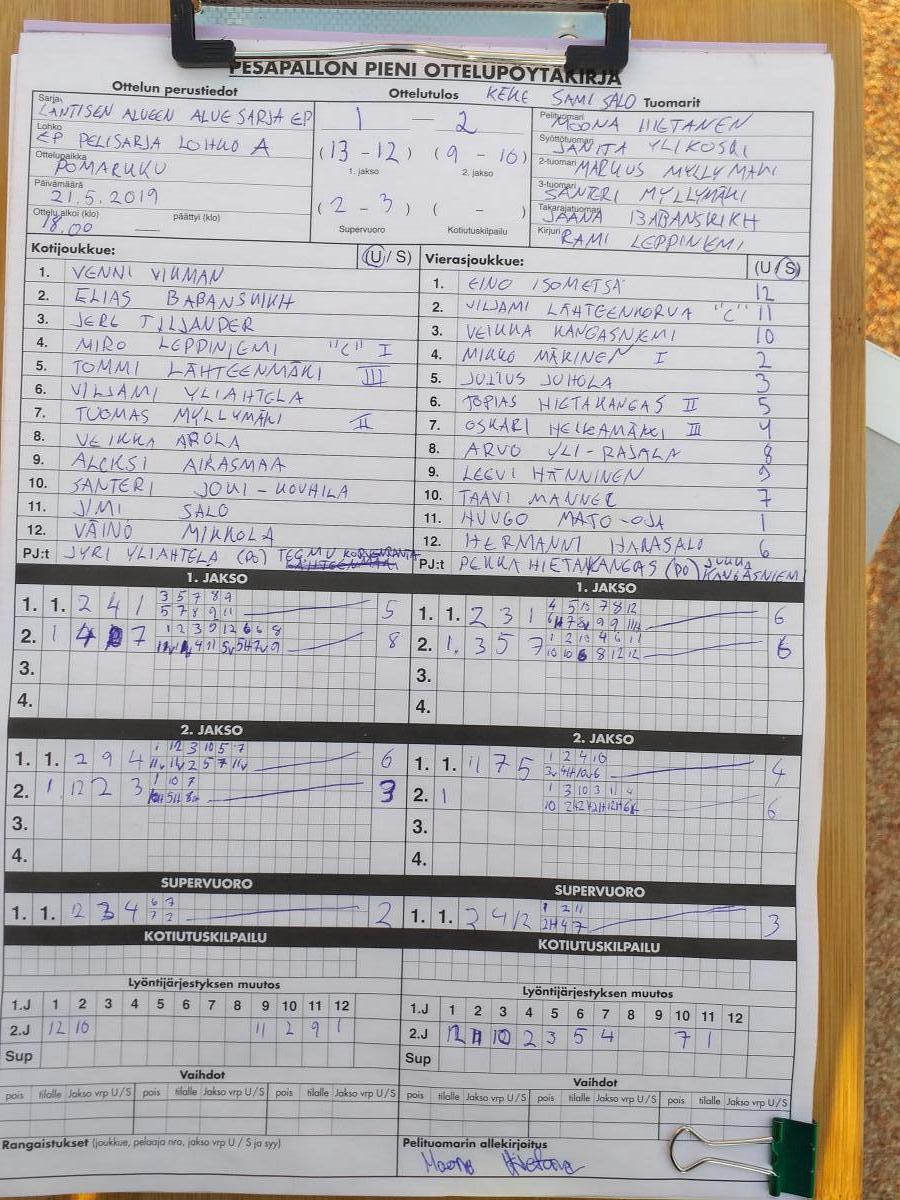 PESÄPALLON PIENI OTTELUPÖYTÄKIRJA
Ottelun perustiedot
Ottelutulos
KEKE SAMI SALO
Tuomarit
Sarja
LÄNTISEN ALUEEN ALUESARJA EP
Lohko
EP PELISARJA LOHKO A
Ottelupaikka
POMARKKU
Päivämäärä
21.5.2019
Ottelu alkoi (klo) päättyi (klo)
18.00
1 — 2
(13 - 12) (9 - 10)
1. jakso 2. jakso
(2 - 3) ( - )
Supervuoro Kotiutuskilpailu
Pelituomari
MOONA HIETANEN
Syöttötuomari
JANITA YLIKOSKI
2-tuomari
MARKUS MYLLYMÄKI
3-tuomari
SANTERI MYLLYMÄKI
Takarajatuomari
JAANA BABANSKIKH
Kirjuri
RAMI LEPPINIEMI
Kotijoukkue: (U / S)
1. VENNI VIKMAN
2. ELIAS BABANSKIKH
3. JERE TILJANDER
4. MIRO LEPPINIEMI "C" I
5. TOMMI LÄHTEENMÄKI III
6. VILJAMI YLIAHTELA
7. TUOMAS MYLLYMÄKI II
8. VEIKKA AROLA
9. ALEKSI AIRASMAA
10. SANTERI JOKI-KOUHILA
11. JIMI SALO
12. VÄINÖ MIKKOLA
PJ:t JYRI YLIAHTELA (PJ) TEEMU
Vierasjoukkue: (U / S)
1. EINO ISOMETSÄ 12
2. VILJAMI LÄHTEENKORVA "C" 11
3. VEIKKA KANGASNIEMI 10
4. MIKKO MÄKINEN I 2
5. JULIUS JUHOLA 3
6. TOPIAS HIETAKANGAS II 5
7. OSKARI HELKAMÄKI III 4
8. ARVO YLI-RAJALA 8
9. LEEVI HÄNNINEN 9
10. TAAVI MANNER 7
11. HUUGO MATO-OJA 1
12. HERMANNI HARASALO 6
PJ:t PEKKA HIETAKANGAS (PJ) JUKKA KANGASNIEMI
1. JAKSO
1. 1. 2 4 1 3 5 7 8 9 5
5 7 8 9 11
2. 1 4 7 1 2 3 5 12 6 6 8 8
3.
4.
1. JAKSO
1. 1. 2 3 1 4 5 10 7 8 12 6
2. 1. 3 5 7 1 2 10 4 6 11 6
10 10 6 8 12 12
3.
4.
2. JAKSO
1. 1. 2 9 4 1 12 3 10 5 7 6
2. 1. 12 2 3 1 10 7 3
3.
4.
2. JAKSO
1. 1. 11 7 5 1 2 4 10 4
2. 1 1 3 10 3 11 4 6
3.
4.
SUPERVUORO
1. 1. 2 3 4 6 7 2
7 2
SUPERVUORO
1. 1. 3 4 12 1 2 11 3
2H 4 7
KOTIUTUSKILPAILU
KOTIUTUSKILPAILU
Lyöntijärjestyksen muutos
1.J 1 2 3 4 5 6 7 8 9 10 11 12
2.J 12 10 11 2 9 1
Sup
Lyöntijärjestyksen muutos
1.J 1 2 3 4 5 6 7 8 9 10 11 12
2.J 12 11 10 2 3 5 4 7 1
Sup
Vaihdot
pois tilalle Jakso vrp U / S pois tilalle Jakso vrp U / S pois tilalle Jakso vrp U / S
Vaihdot
pois tilalle Jakso vrp U / S pois tilalle Jakso vrp U / S pois tilalle Jakso vrp U / S
Rangaistukset (joukkue, pelaaja nro, jakso vrp U / S ja syy)
Pelituomarin allekirjoitus
Moona Hietanen